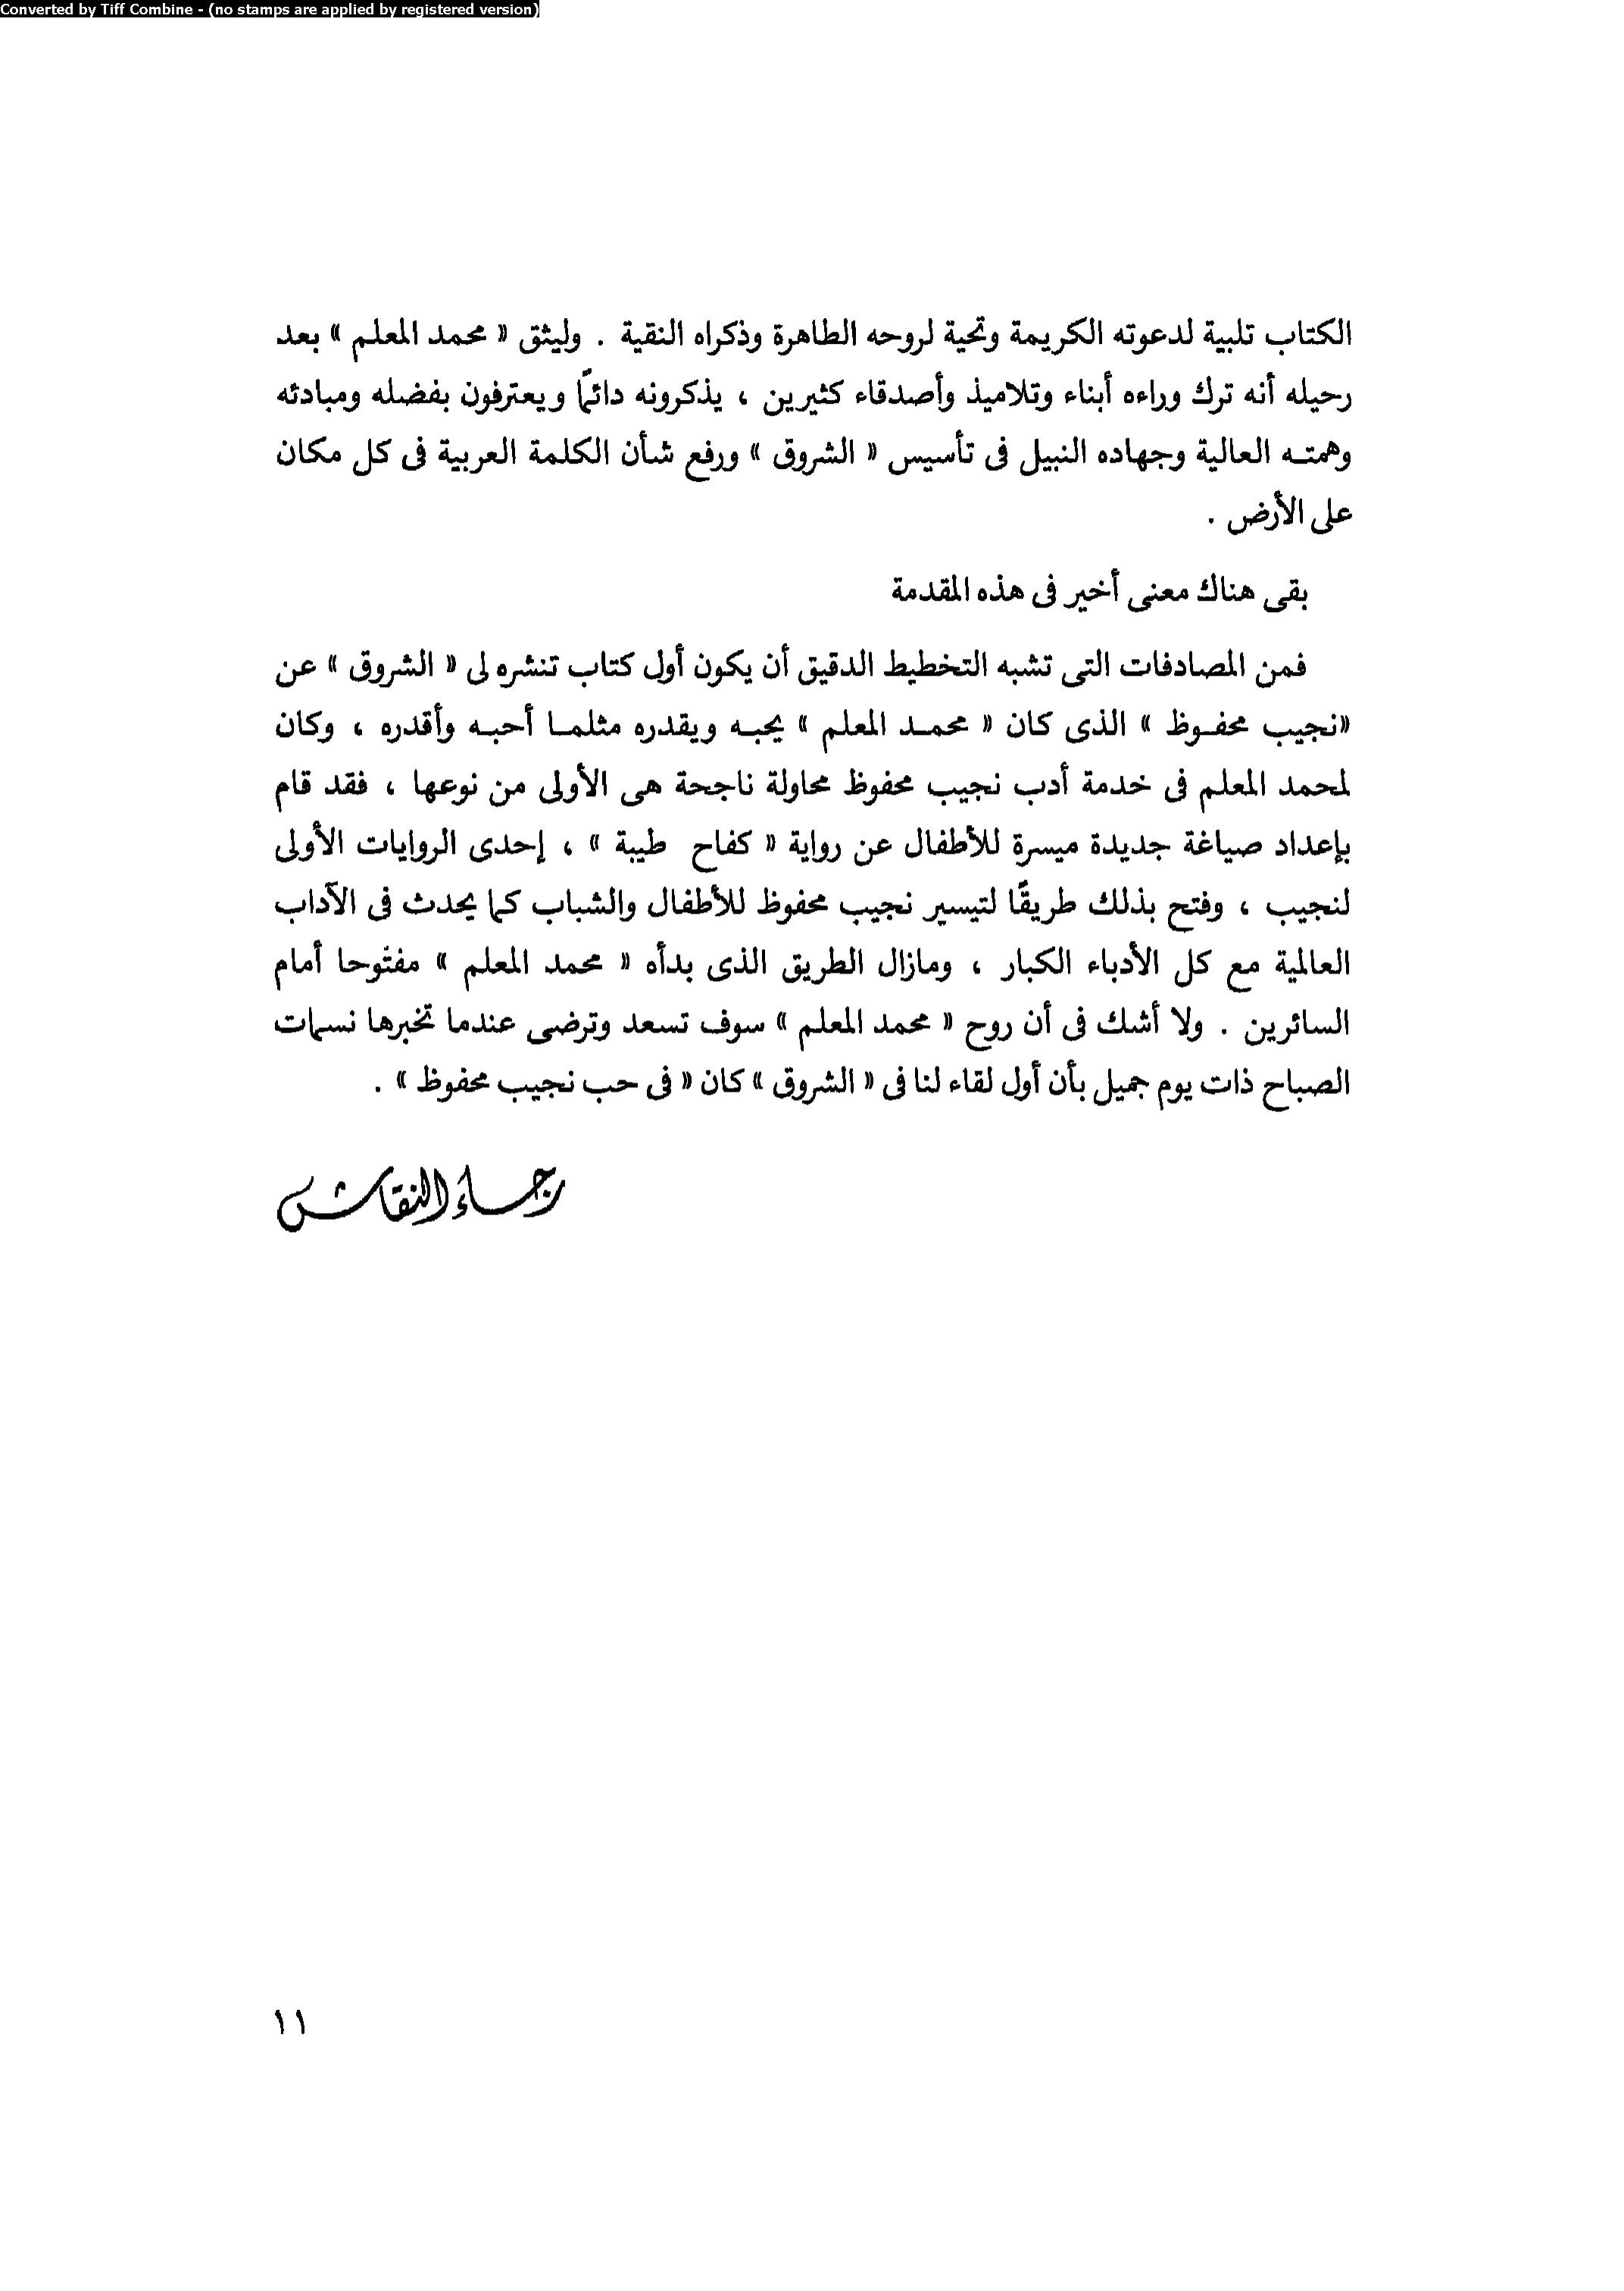 Converted by Tiff Combine - (no stamps are applied by registered version)
الكتاب تلبية لدعوته الكريمة وتحية لروحه الطاهرة وذكراه النقية . وليثق « محمد المعلم » بعد
رحيله أنه ترك وراءه أبناء وتلاميذ وأصدقاء كثيرين ، يذكرونه دائمًا ويعترفون بفضله ومبادئه
وهمتـه العالية وجهاده النبيل فى تأسيس « الشروق » ورفع شأن الكلمة العربية فى كل مكان
على الأرض .
بقى هناك معنى أخير فى هذه المقدمة
فمن المصادفات التى تشبه التخطيط الدقيق أن يكون أول كتاب تنشره لى « الشروق » عن
«نجيب محفـوظ » الذى كان « محمـد المعلم » يحبـه ويقدره مثلمـا أحبـه وأقدره ، وكان
لمحمد المعلم فى خدمة أدب نجيب محفوظ محاولة ناجحة هى الأولى من نوعها ، فقد قام
بإعداد صياغة جديدة ميسرة للأطفال عن رواية « كفاح طيبة » ، إحدى الروايات الأولى
لنجيب ، وفتح بذلك طريقًا لتيسير نجيب محفوظ للأطفال والشباب كما يحدث فى الآداب
العالمية مع كل الأدباء الكبار ، ومازال الطريق الذى بدأه « محمد المعلم » مفتوحا أمام
السائرين . ولا أشك فى أن روح « محمد المعلم » سوف تسعد وترضى عندما تخبرها نسمات
الصباح ذات يوم جميل بأن أول لقاء لنا فى « الشروق » كان « فى حب نجيب محفوظ » .
رجاء النقاش
١١